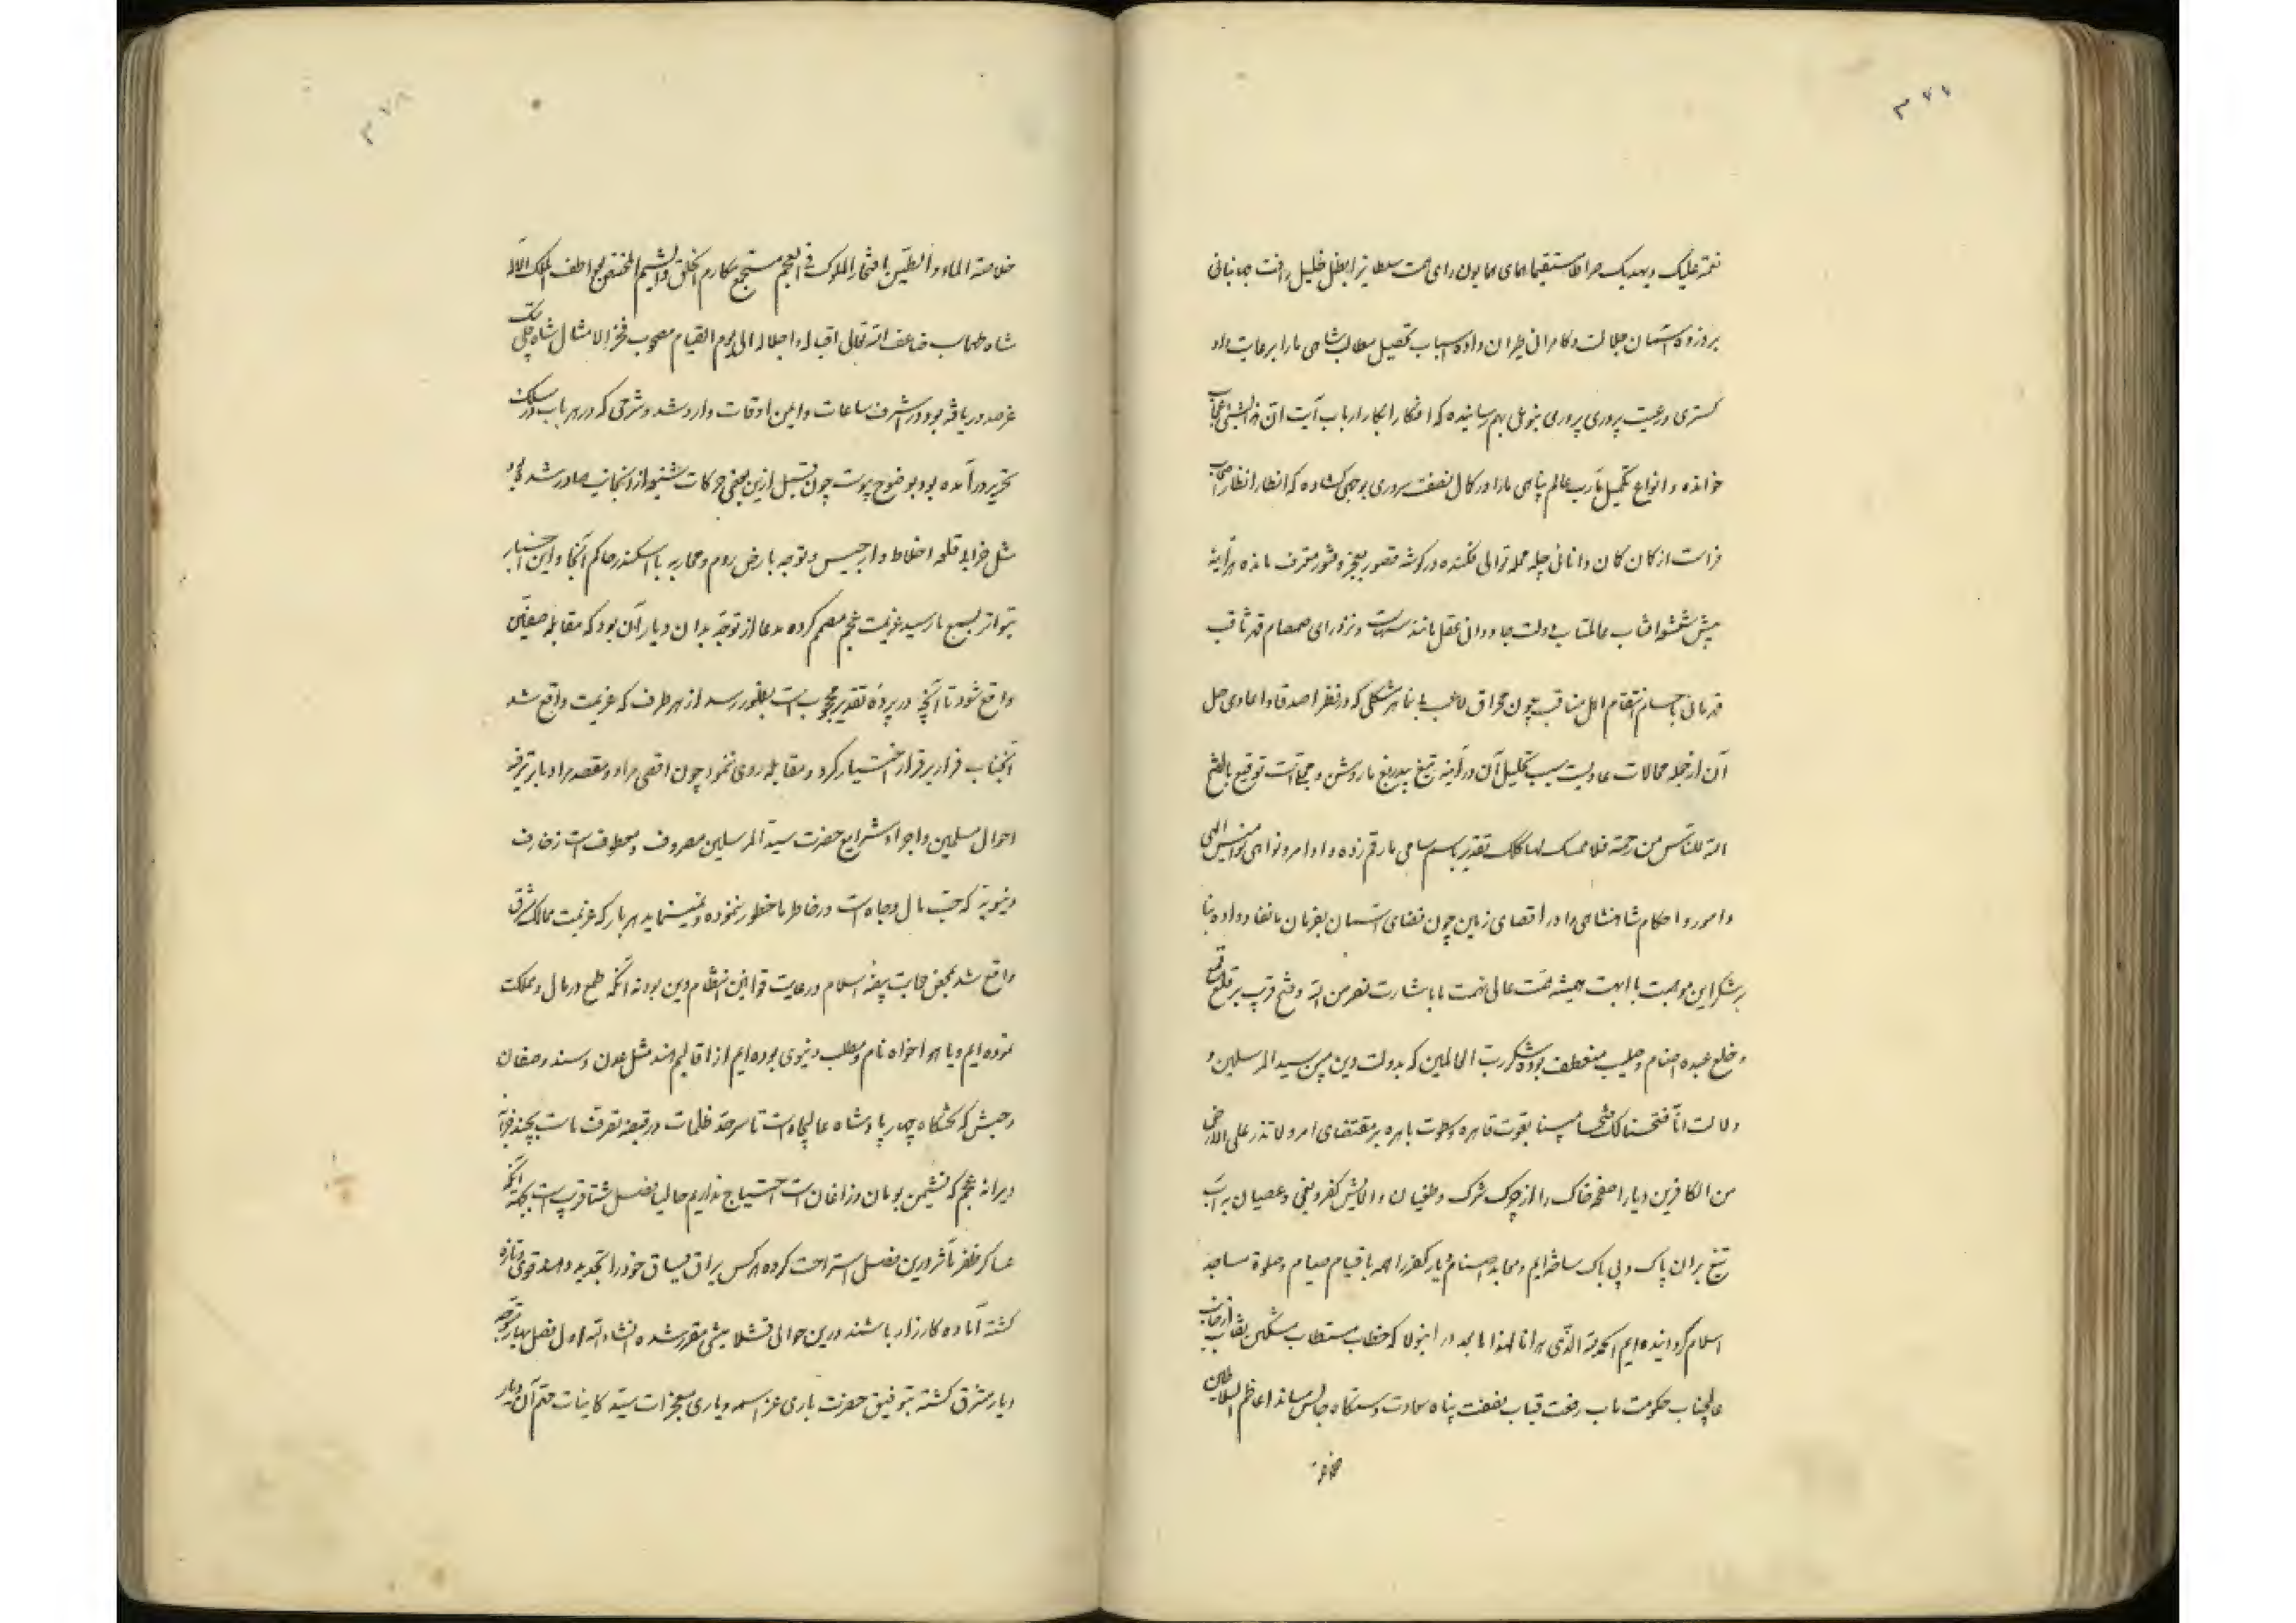 ۳۷۷
نعمته علیک و یهدیک صراطا مستقیما همای همایون رای همت سلطانیرا بظل ظلیل رافت جهانبانی
بر ذروه آسمان جلالت و کامرانی طیران داده اسباب تحصیل مطالب شاهی ما را برعایت داد
کستری و رعیت پروری بنوعی بهم رسانیده که افکار ابکار ارباب آیت ان هذا لشیئ عجاب
خوانده و انواع تکمیل مآرب عالم پناهی ما را در کمال نصفت سروری بوجهی کشاده که انظار انظار اصحاب
فراست از کمان کان و انانی جله حمله توالی فکنده در کوشه قصور بعجز و قصور معترف مانده هرآینه
پیش شعشعه آفتاب عالمتاب دولت جاودانی عقل مانند سهاست و نزد رای صمصام قهر ثاقب
قهرمانی با حسام انتقام اهل مناقب چون مخراق لاعب بنا بر هر مشکلی که در نظر اصدقا و اعادی حل
آن از جمله محالات عادیست سبب تحلیل آن در آینه تیغ بیدریغ ما روشن و مجلاست توقیع ما یفتح
الله للناس من رحمة فلا ممسک لها کلک تقدیر باسم سامی ما رقم زده و اوامر و نواهی نوامیس الهی
و امور و احکام شاهنشاهی را در اقصای زمین چون قضای آسمان بفرمان ما نفاذ داده بنا
بر شکر این موهبت با ابهت همیشه همت عالی نهمت ما با شارت نصر من الله و فتح قریب بر قلع و قمع
و خلع عبده اصنام و صلیب منعطف بوده شکر رب العالمین که بدولت دین مبین سید المرسلین و
دلالت انا فتحنا لک فتحا مبینا بقوت قاهره و سطوت باهره بر مقتضای امر و لا تذر علی الارض
من الکافرین دیارا صفحه خاک را از چرک شرک و طغیان و الایش کفر و بغی و عصیان به آب
تیغ بران پاک و بی باک ساخته ایم و معابد اصنام دیار کفر را همه با قیام صیام و صلوة مساجد
اسلام کردانیده ایم الحمد لله الذی هدانا لهذا اما بعد در اینولا که خطاب مستطاب مشکین نقاب از جانب
عالیجناب حکومت مآب رفعت قباب نصفت پناه سعادت دستکاه جالس مساند اعاظم السلاطین
خلاصة
۳۷۸
خلاصة الماء و الطین افتخار الملوک فی العجم مستجمع مکارم الخلق و الشیم المختص بعواطف الملک الاله
شاه طهماسب ضاعف الله تعالی اقباله و اجلاله الی یوم القیام مصحوب فخر الامثال شاه قلی بک
عز صدور یافته بود در اشرف ساعات و ایمن اوقات وارد شد و شرحی که در هر باب در سلک
تحریر درآمده بود بوضوح پیوست چون قبل ازین بعضی حرکات شنیعه از آنجانب صادر شده بود
مثل خرابه قلعه اخلاط و ارجیس و توجه بارض روم و محاربه با اسکندر حاکم آنجا و این اخبار
بتواتر بسمع ما رسید عزیمت عجم مصمم کرده مدعا از توجه بدان دیار آن بود که مقابله صفین
واقع شود تا آنچه در پرده تقدیر محجوب است بظهور رسد از هر طرف که عزیمت واقع شد
آنجناب فرار بر قرار اختیار کرد و مقابله روی ننمود چون اقصی مراد و مقصد ما را بر ترفیه
احوال مسلمین و اجراء شرایع حضرت سید المرسلین مصروف و معطوفست زخارف
دنیویه که حب مال و جاه است در خاطر ما خطور ننموده و نمینماید هر بار که عزیمت ممالک شرق
واقع شد بمحض حمایت بیضه اسلام و رعایت قوانین انتظام دین بود نه آنکه طمع در مال و مملکت
نموده ایم و یا هوا خواه نام و مطلب دنیوی بوده ایم از اقالیم هند مثل عدن و سند و صفان
و حبش که تختکاه چهار پادشاه عالیجاه است تا سرحد ظلمات در قبضه تصرف ماست بچند خرابه
ویرانه عجم که نشیمن بومان و زاغان است احتیاج نداریم حالیا فصل شتا قریبست بجهته آنکه
عساکر ظفر مآثر درین فصل استراحت کرده هر کس یراق یساق خود را تجدید دهند و قوی و تازه
کشته آماده کارزار باشند درین حوالی قشلامیشی مقرر شده انشاء الله اول فصل بهار متوجه
دیار مشرق کشته بتوفیق حضرت باری عز اسمه و یاری معجزات سید کاینات ختم آن دیار